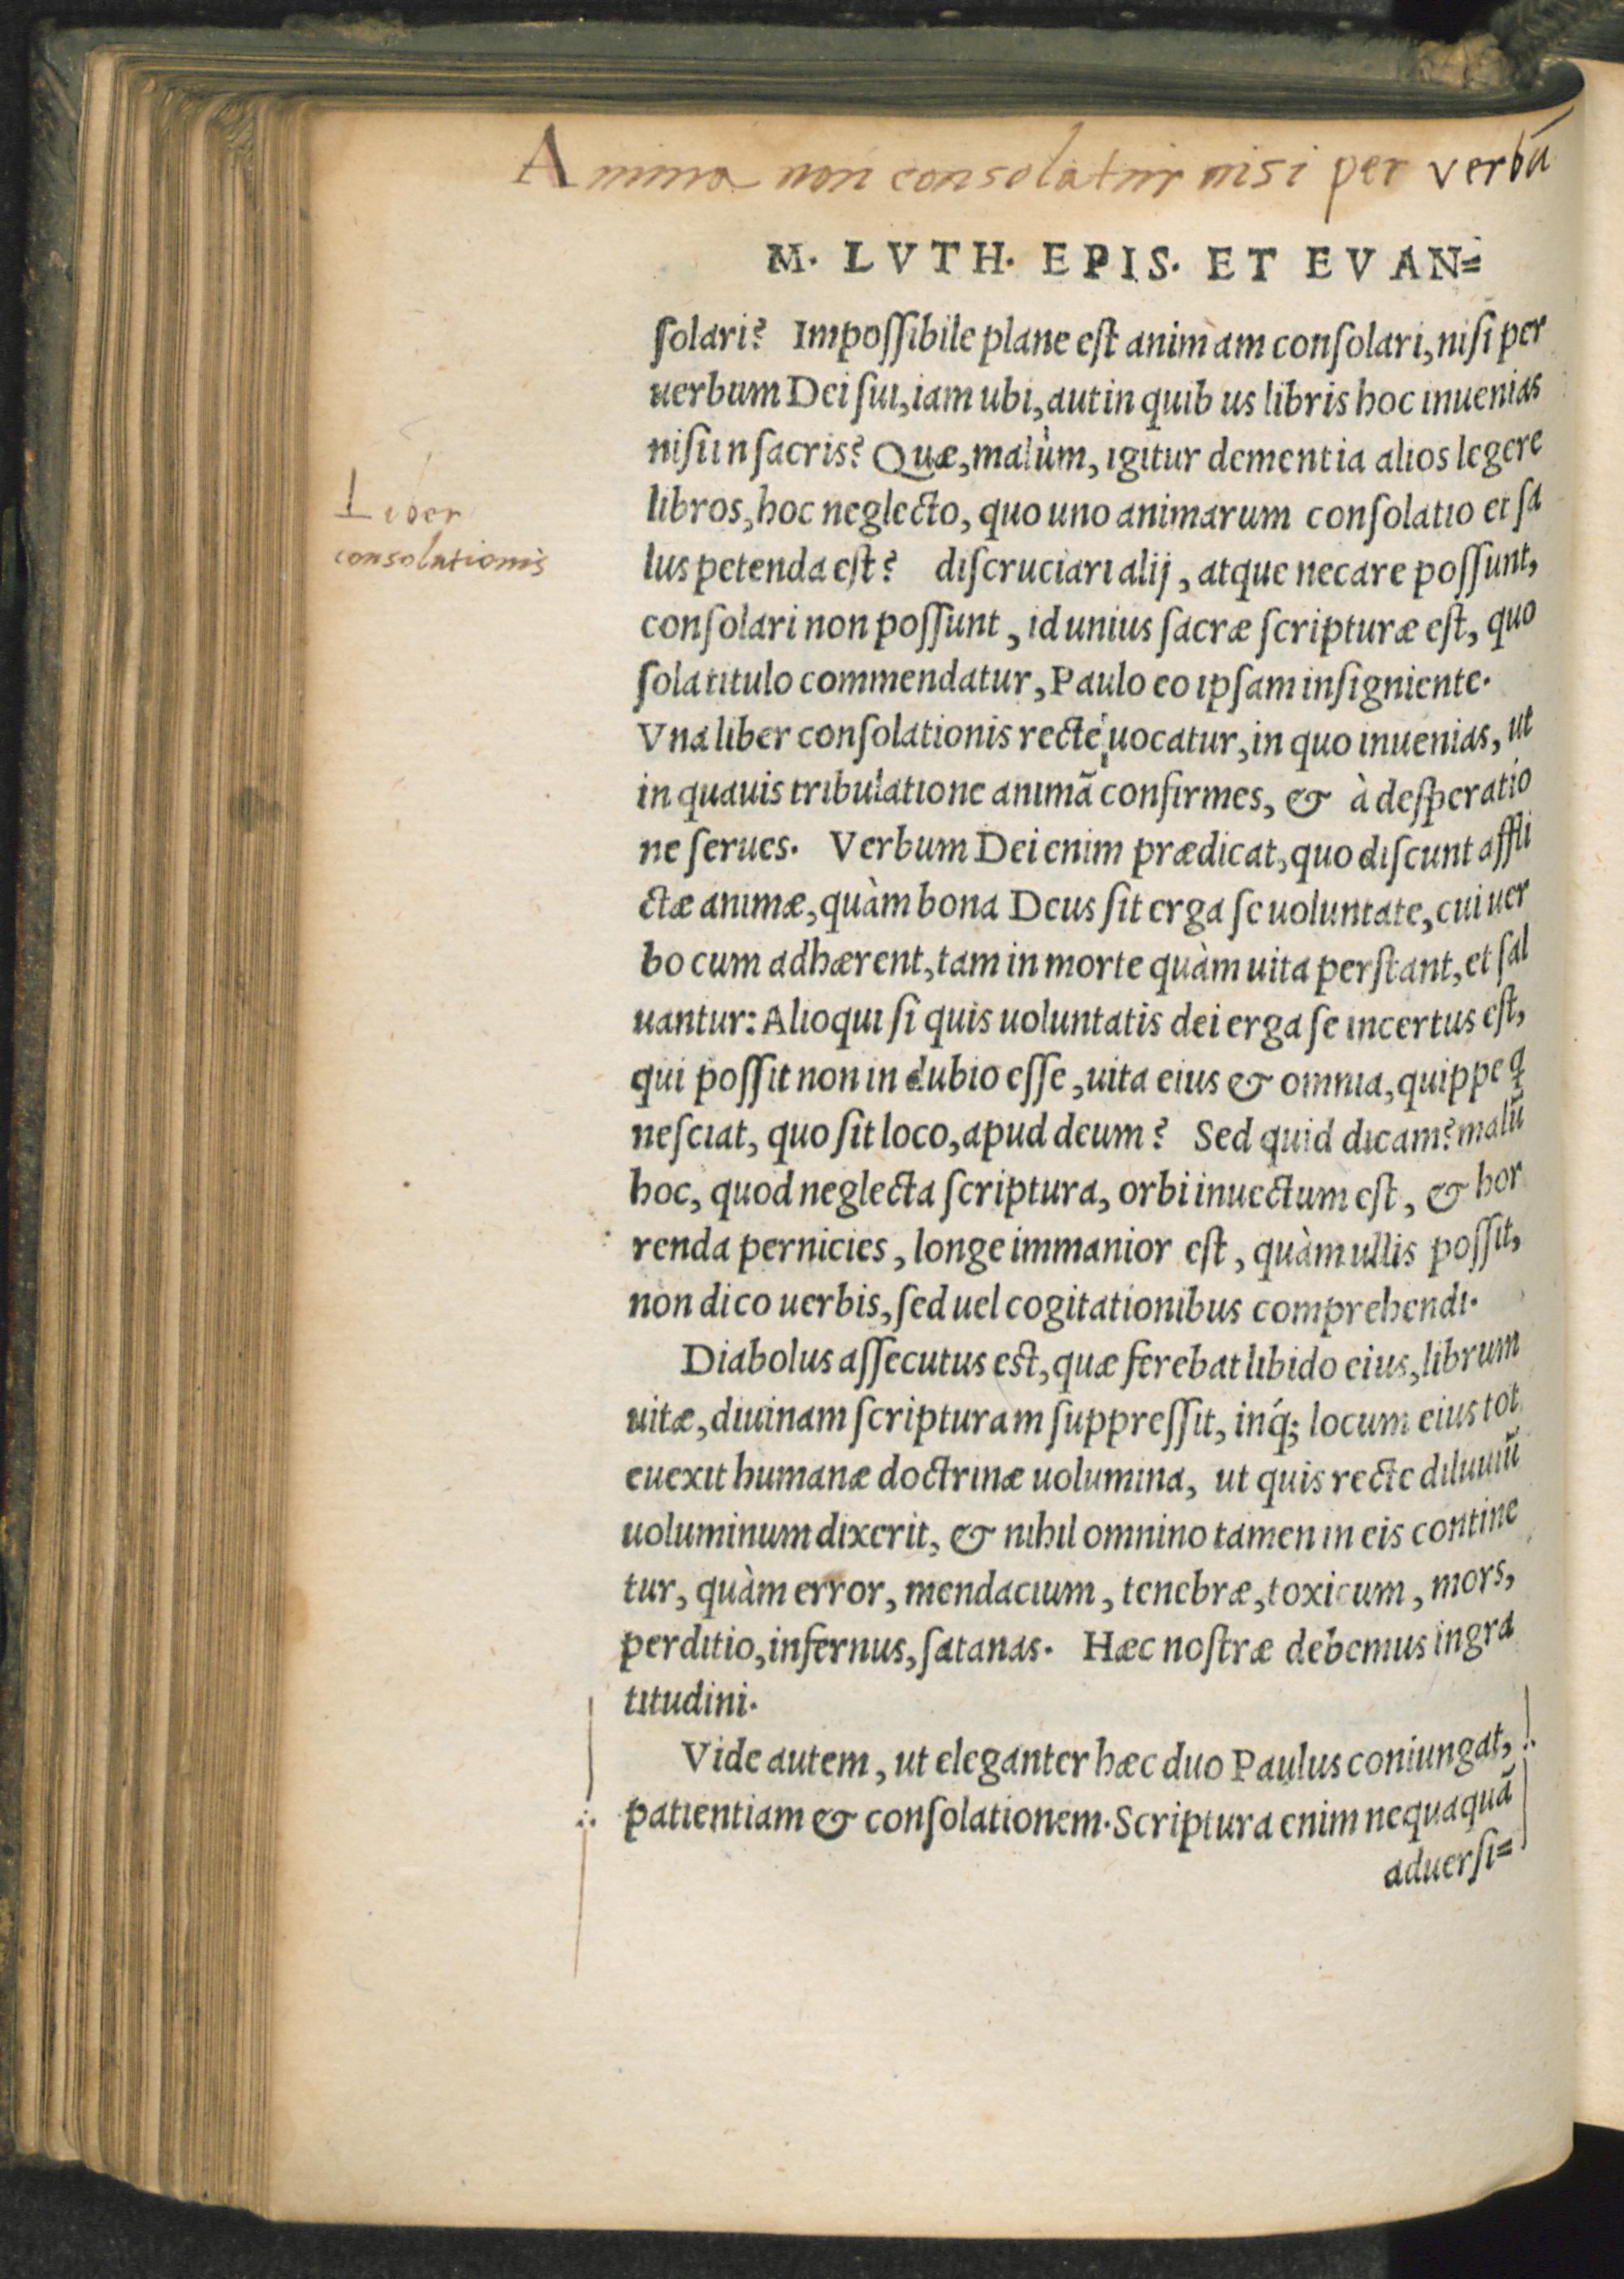 Anima non consolatur nisi per verbū
M. LVTH. EPIS. ET EVAN=
ſolari? Impoſſibile plane eſt animam conſolari, niſi per
uerbum Dei ſui, iam ubi, aut in quib us libris hoc inuenias
niſi in ſacris? Quæ, malùm, igitur dementia alios legere
libros, hoc neglecto, quo uno animarum conſolatio et ſa
lus petenda eſt? diſcruciari alij, atque necare poſſunt,
conſolari non poſſunt, id unius ſacræ ſcripturæ eſt, quo
ſola titulo commendatur, Paulo eo ipſam inſigniente.
Liber
consolationis
Vna liber conſolationis rectè uocatur, in quo inuenias, ut
in quauis tribulatione animā confirmes, & à deſperatio
ne ſerues. Verbum Dei enim prædicat, quo diſcunt affli
ctæ animæ, quàm bona Deus ſit erga ſe uoluntate, cui uer
bo cum adhærent, tam in morte quàm uita perſtant, et ſal
uantur: Alioqui ſi quis uoluntatis dei erga ſe incertus eſt,
qui poſſit non in dubio eſſe, uita eius & omnia, quippe q
neſciat, quo ſit loco, apud deum? Sed quid dicam? malū
hoc, quod neglecta ſcriptura, orbi inuectum eſt, & hor
renda pernicies, longe immanior eſt, quàm ullis poſſit,
non dico uerbis, ſed uel cogitationibus comprehendi.
Diabolus aſſecutus eſt, quæ ferebat libido eius, librum
uitæ, diuinam ſcripturam ſuppreſſit, inq́; locum eius tot
euexit humanæ doctrinæ uolumina, ut quis recte diluuiū
uoluminum dixerit, & nihil omnino tamen in eis contine
tur, quàm error, mendacium, tenebræ, toxicum, mors,
perditio, infernus, ſatanas. Hæc noſtræ debemus ingra
titudini.
Vide autem, ut eleganter hæc duo Paulus coniungat,
patientiam & conſolationem. Scriptura enim nequaquā
aduerſi=